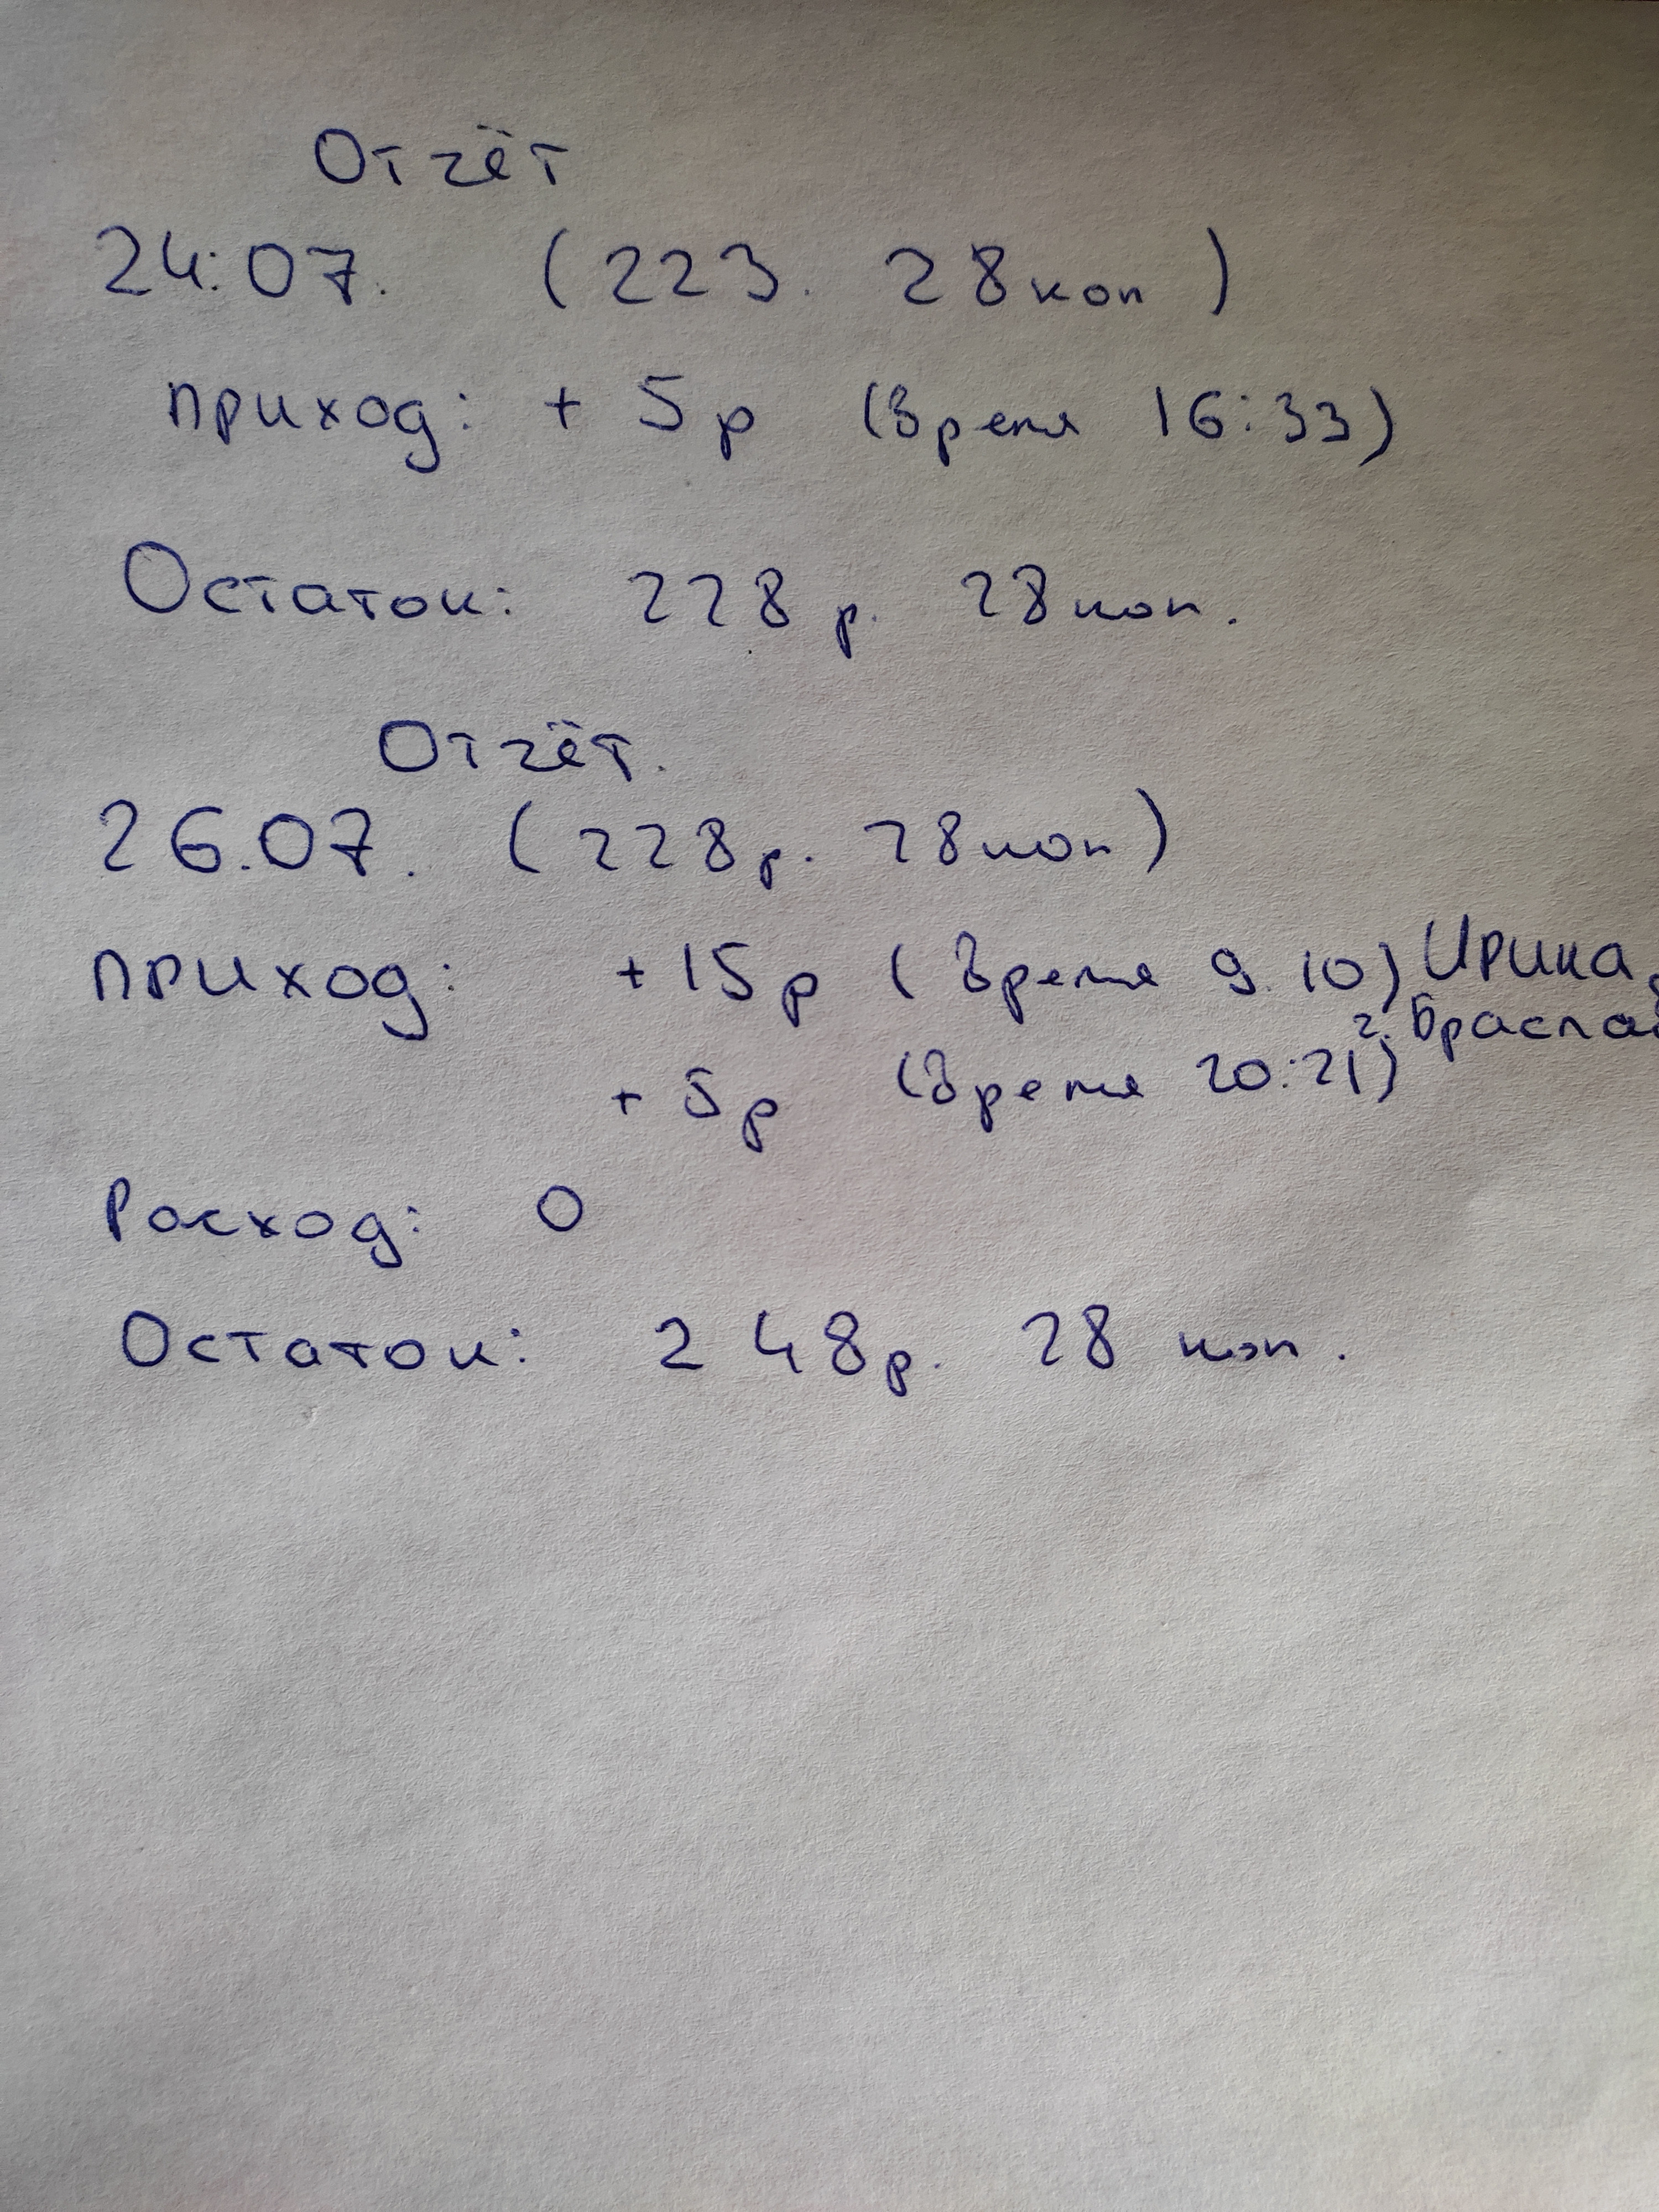 Отчёт
24.07. (223. 28коп)
приход: + 5р (время 16:33)
Остаток: 228р. 28коп.
Отчёт.
26.07. (228р. 28коп)
приход: +15р (время 9.10) Ирина,
г. Браслав
+ 5р (время 20:21)
Расход: 0
Остаток: 248р. 28 коп.